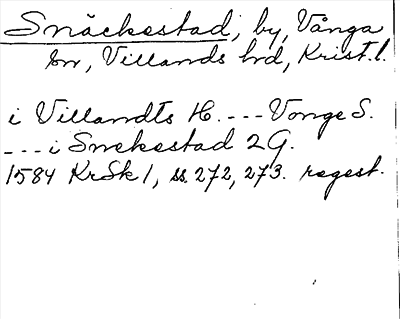 Snäckestad, by, Vånga
sn, Villands hd, Krist. l.
i Villandts H. --- Vonge S.
--- i Snekestad 2 G.
1584 KrSk 1, ss. 272, 273. regest.